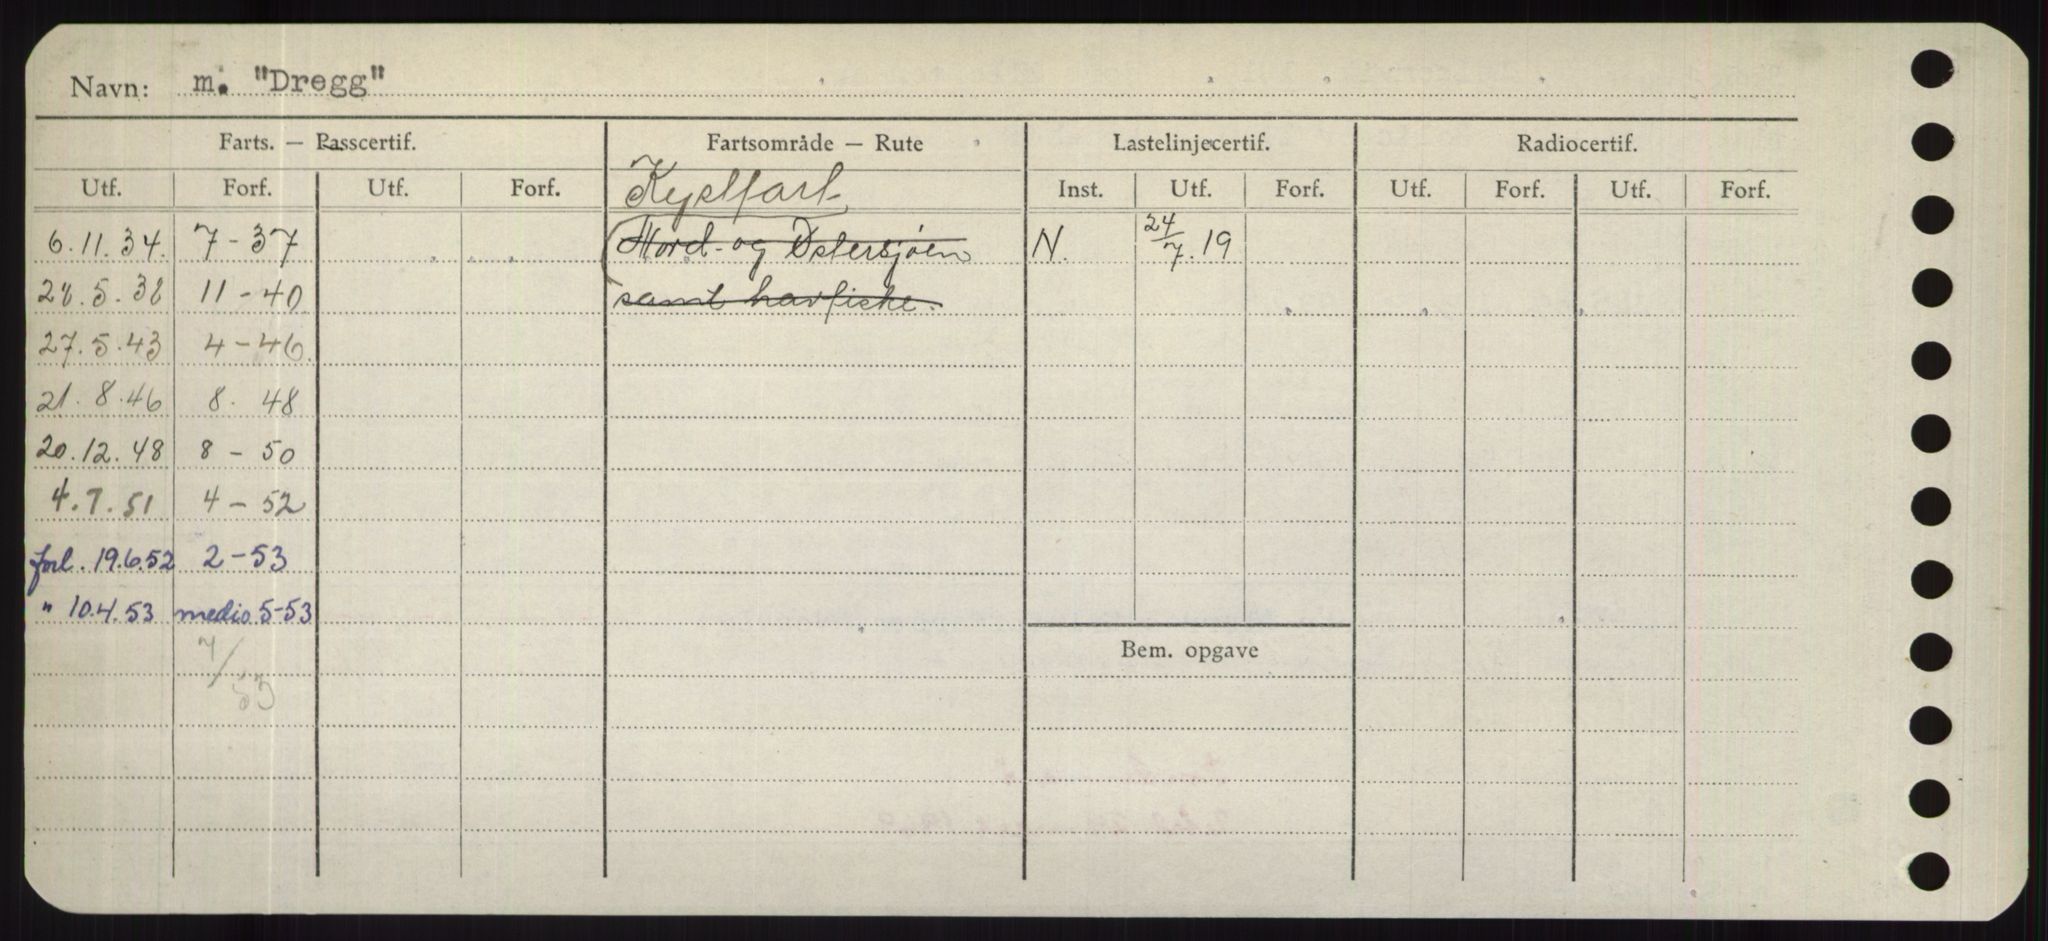 Navn: m. "Dregg"
Farts. — Passcertif. Fartsområde — Rute Lastelinjecertif. Radiocertif.
Utf. Forf. Utf. Forf. Kystfart Inst. Utf. Forf. Utf. Forf. Utf. Forf.
6.11.34. 7-37 Nord- og Østersjøen N. 24/7.19
28.5.38 11-40 samt havfiske.
27.5.43 4-46.
21.8.46 8. 48
20.12.48 8-50
4.7.51 4-52
forl. 19.6.52 2-53
" 10.4.53 medio 5-53
7/53
Bem. opgave